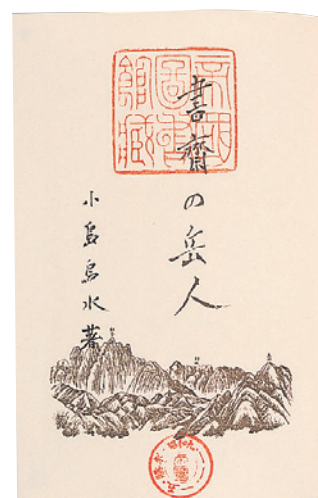 帝國
圖書
館藏
書齋の岳人
小島烏水著
昭和九